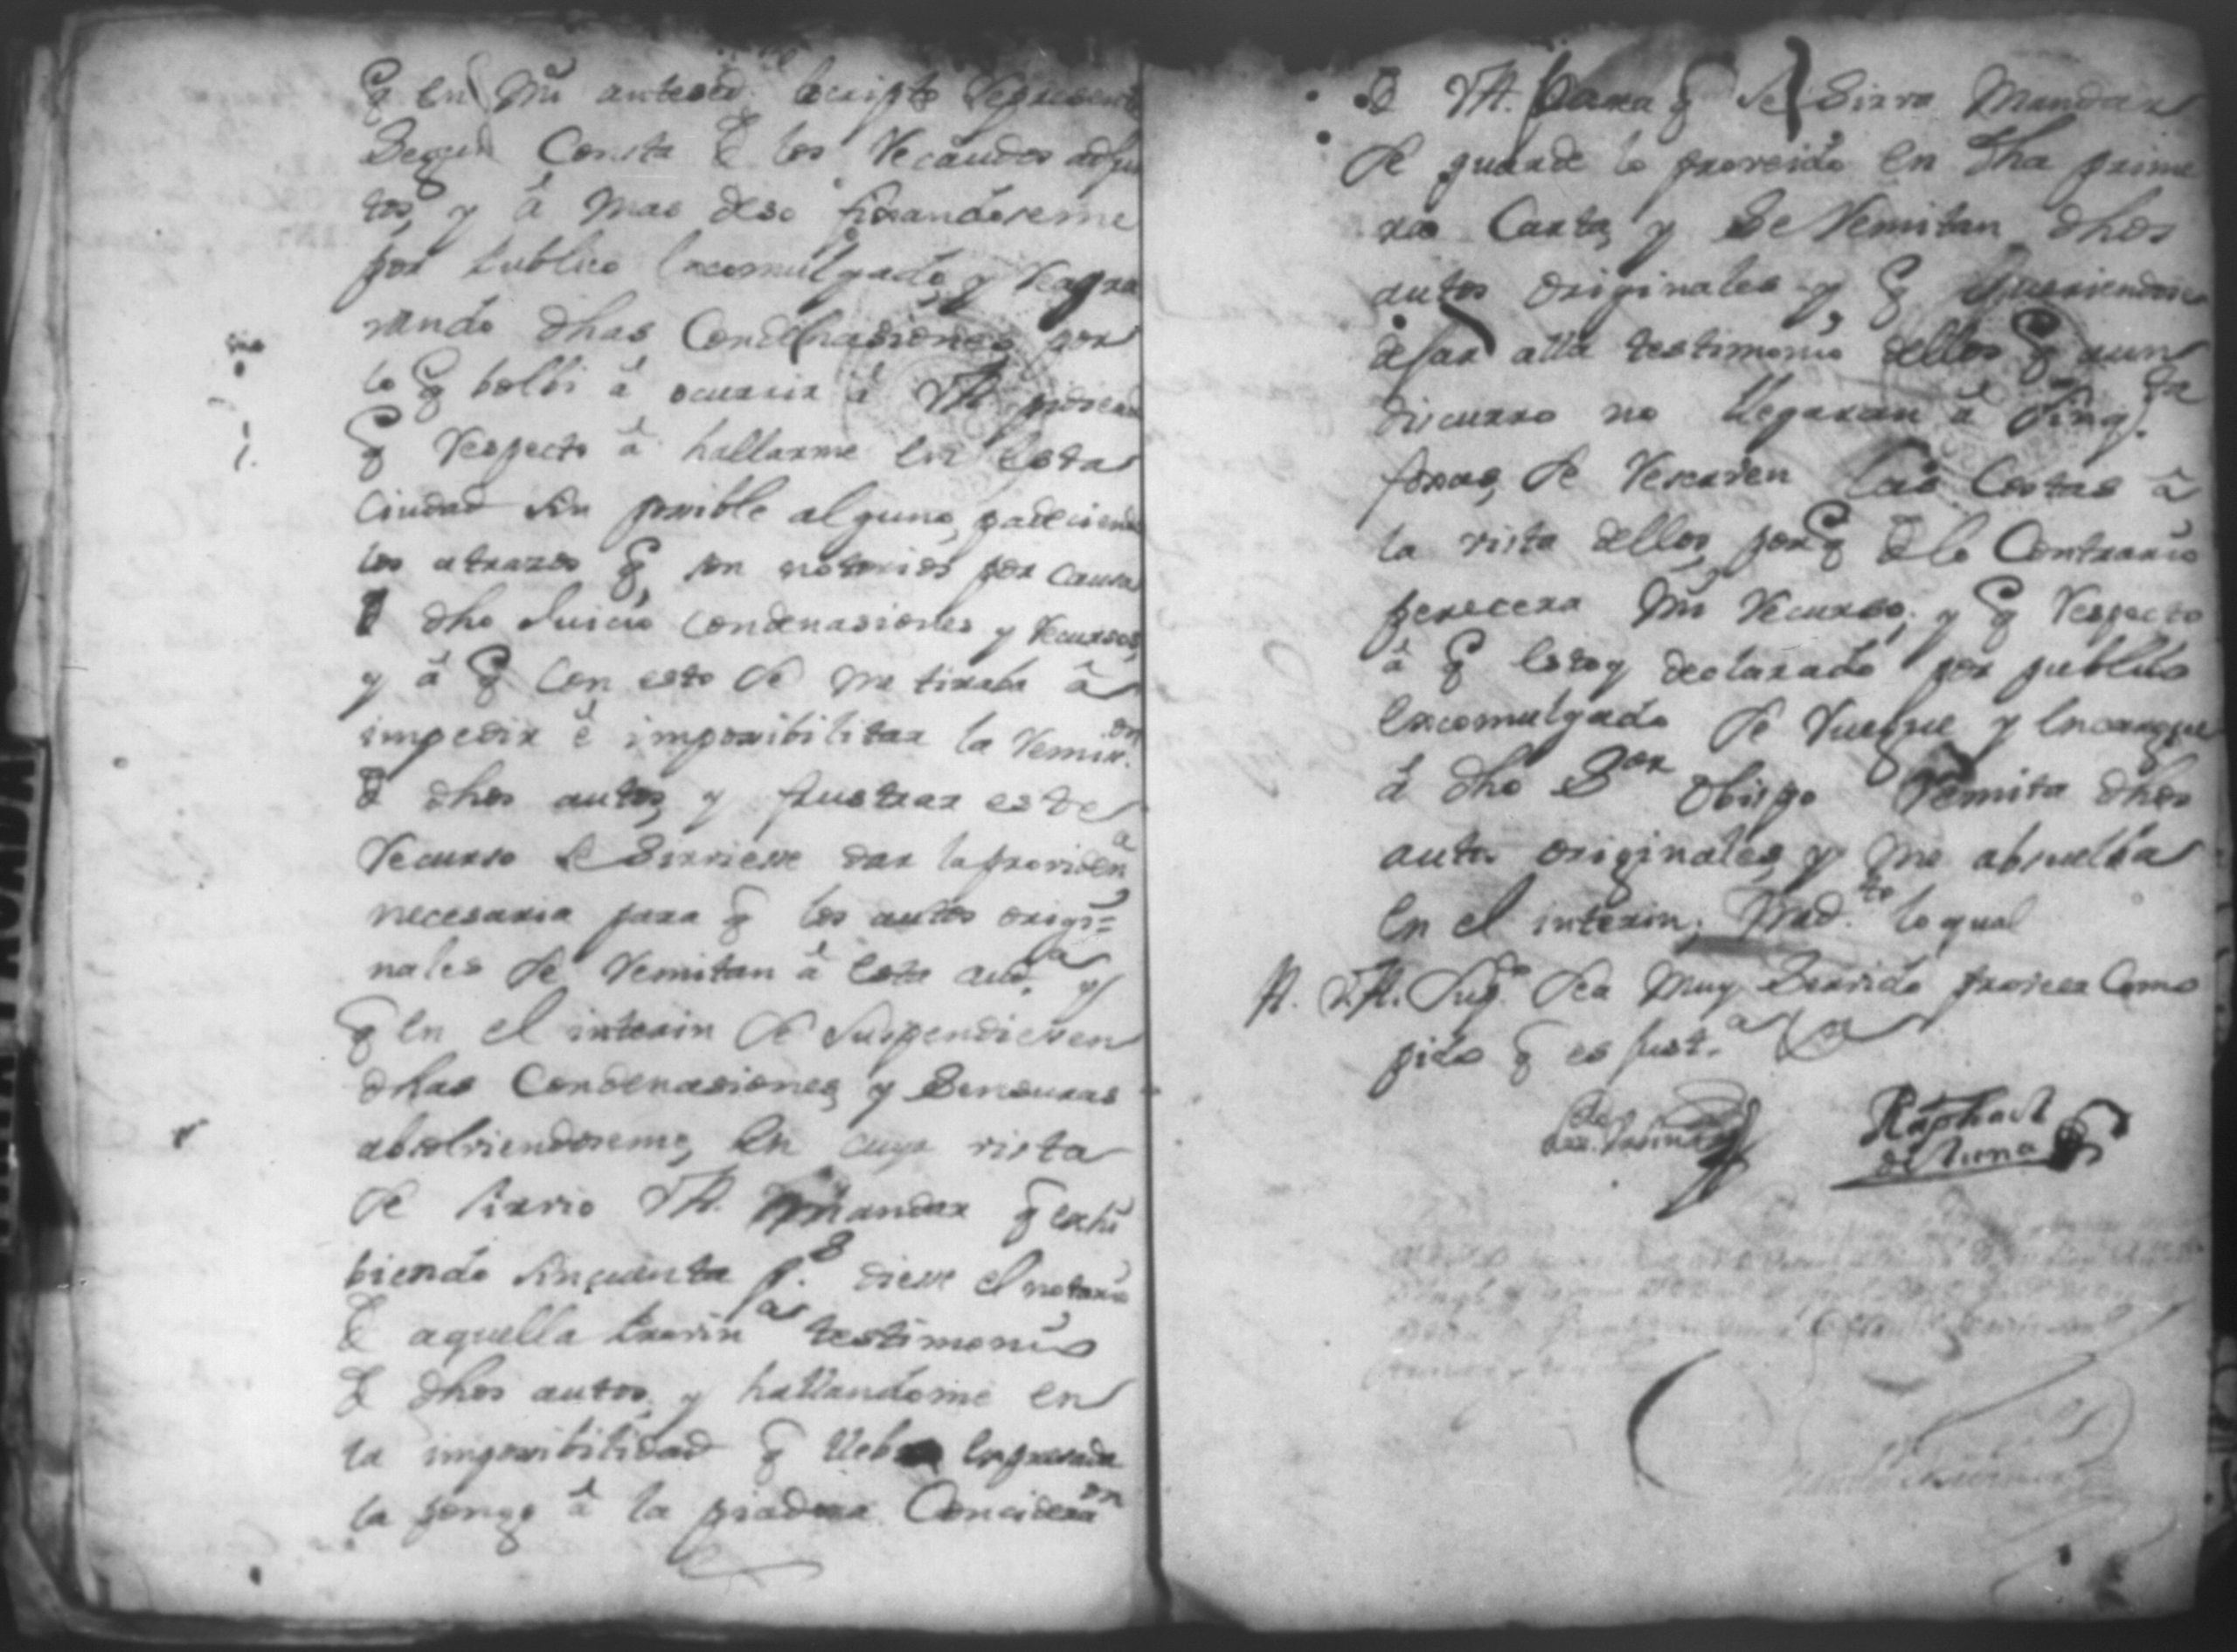 q̃ en mi anteced.te escripto Represente
Segun Consta đ los Recaudos adjun
tos, y â mas deso fixandoseme
por publico excomulgado, y Reagra
vando dhas Condenasiones, por
lo q̃ bolbi â ocurrir â VA. pidiendo
q̃ Respecto â hallarme en esta
Ciudad sin posible alguno, padeciendo
los atrazos q̃ son notorios por causa
đ dho Juicio condenasiones y Recursos,
y â q̃ con esto se me tiraba â
impedir ê imposibilitar la Remis.on
đ dhos autos, y frustrar este
Recurso se Sirviese dar la providen.a
necesaria para q̃ los autos origi=
nales se Remitan â esta aud.a y
q̃ en el interin se suspendiesen
dhas Condenasiones, y Sensuras
absolviendoseme, en cuya vista
se sirvio VA. mandar q̃ exhi
biendo sinquenta p.s diese el notario
đ aquella provin.a testimonio
đ dhos autos, y hallandome en
la imposibilidad q̃ llebo expresada
la pongo â la piadosa Concidera.on
đ VA. para q̃ se Sirva Mandar
se guarde lo proveido en dha prime
ra Carta, y Se Remitan dhos
autos originales y q̃ queriendose
dejar alla testimonio dellos q̃ aun
discurro no llegaran â sinq.ta
foxas, se Reserven las Costas â
la vista dellos, porq̃ đ lo Contrario
perecera mi Recurso, y q̃ Respecto
â q̃ estoy declarado por publico
excomulgado se Ruegue y encargue
â dho S.or Obispo Remita dhos
autos originales, y me absuelba
en el interin, Med.te lo qual
A. VA. Sup.co sea muy Servido proveer Como
pido q̃ es just.a
Raphael
de Luna